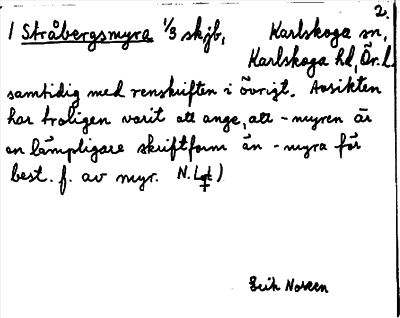 2.
1 Stråbergsmyra 1/3 skjb, Karlskoga sn,
Karlskoga hd, Ör.l.
samtidig med renskriften i övrigt. Avsikten
har troligen varit att ange, att -myren är
en lämpligare skriftform än -myra för
best. f. av myr. N.L. )
Erik Noreen